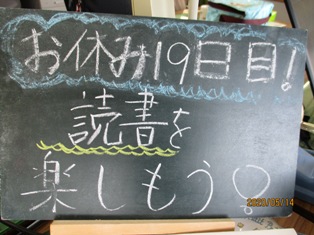 お休み19日目!
読書を
楽しもう!
2020/05/14